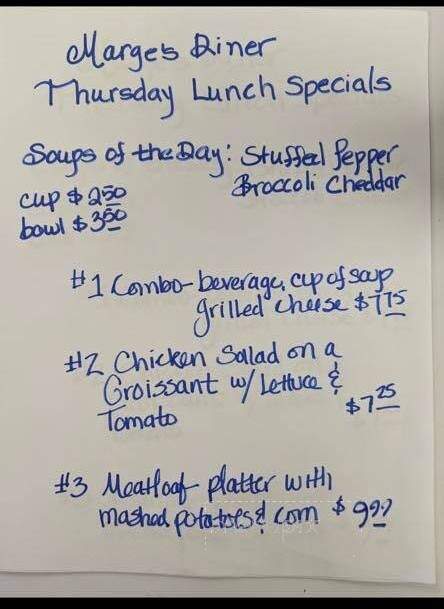 Marge's Diner
Thursday Lunch Specials
Soups of the Day: Stuffed Pepper
Broccoli Cheddar
cup $2.50
bowl $3.50
#1 Combo- beverage, cup of soup
grilled cheese $7.75
#2 Chicken Salad on a
Croissant w/ Lettuce &
Tomato
$7.25
#3 Meatloaf platter with
mashed potatoes & corn $9.99